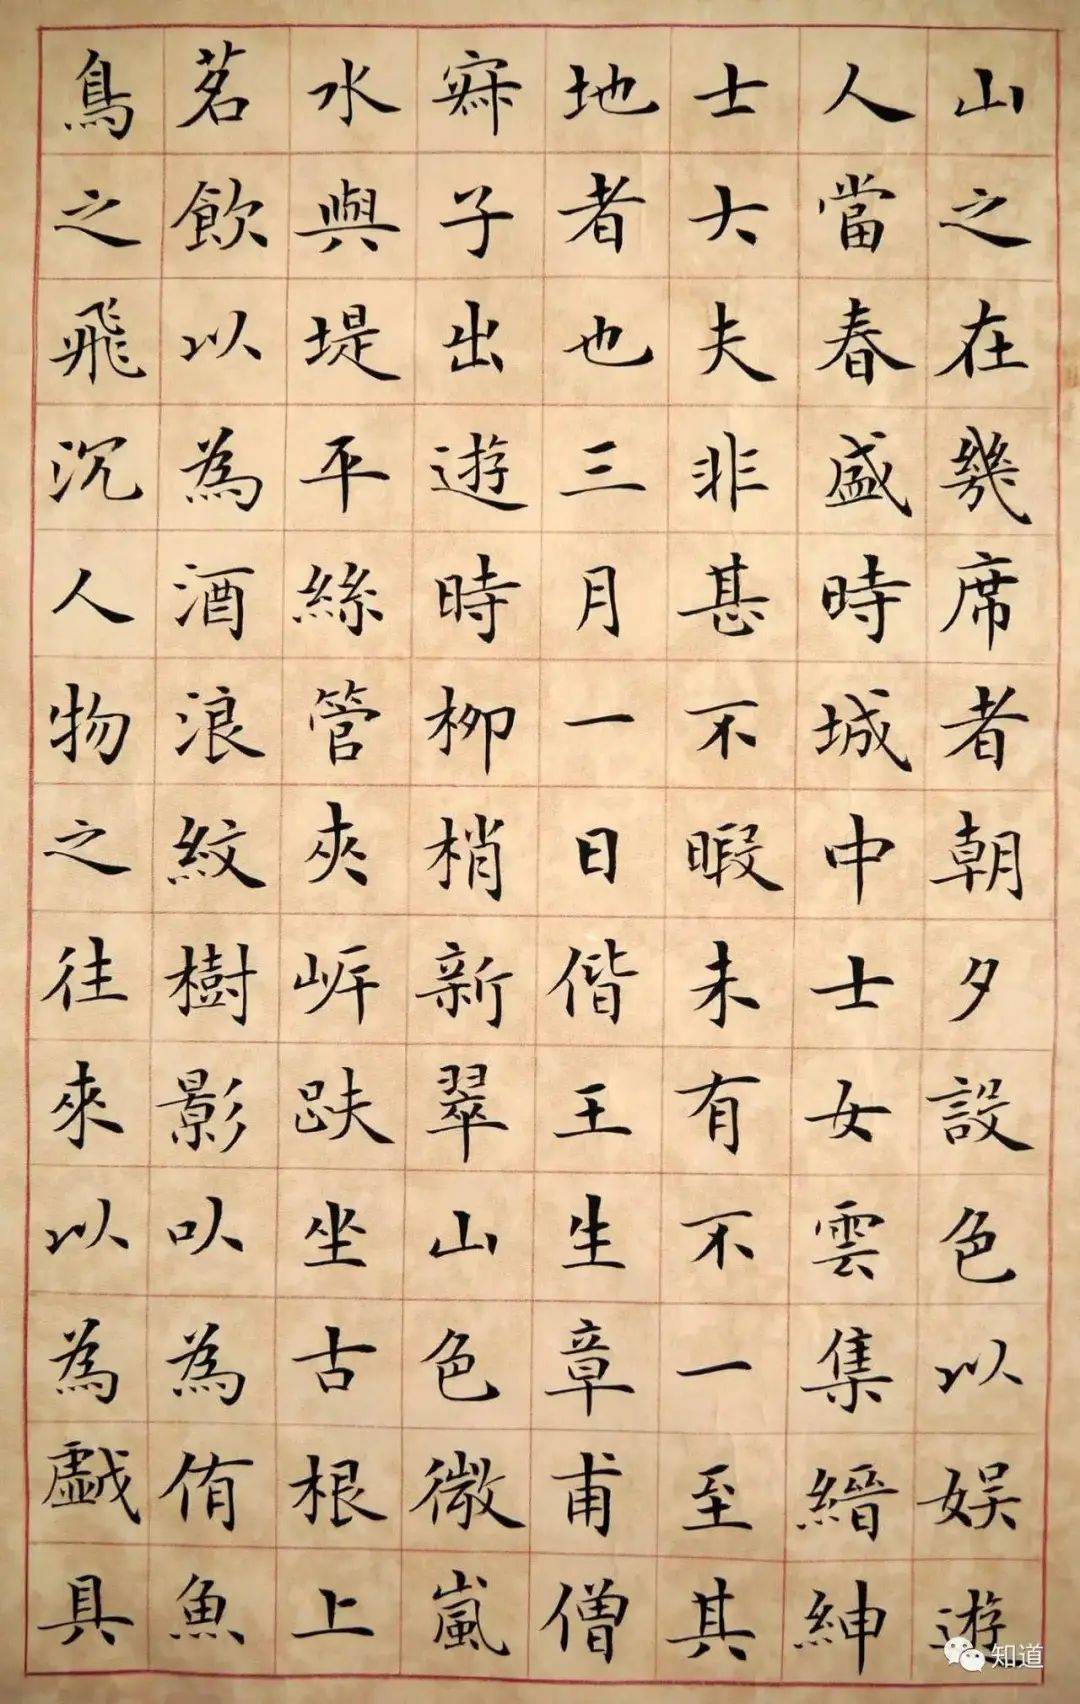 山之在幾席者朝夕設色以娛遊
人當春盛時城中士女雲集縉紳
士大夫非甚不暇未有不一至其
地者也三月一日偕王生章甫僧
寂子出遊時柳梢新翠山色微嵐
水與堤平絲管夾岸趺坐古根上
茗飲以為酒浪紋樹影以為侑魚
鳥之飛沉人物之往來以為戲具
知道